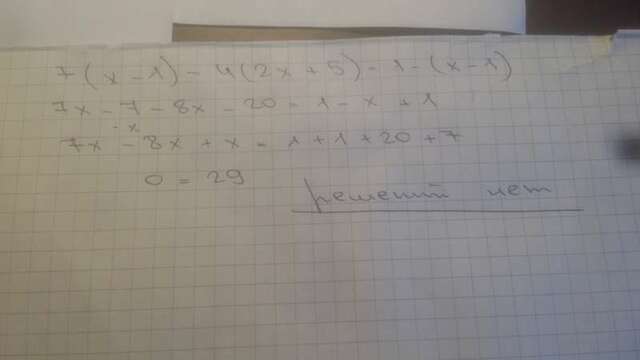 7(x-1)-4(2x+5)=1-(x-1)
7x-7-8x-20=1-x+1
-x
7x-8x+x=1+1+20+7
0=29
решений нет